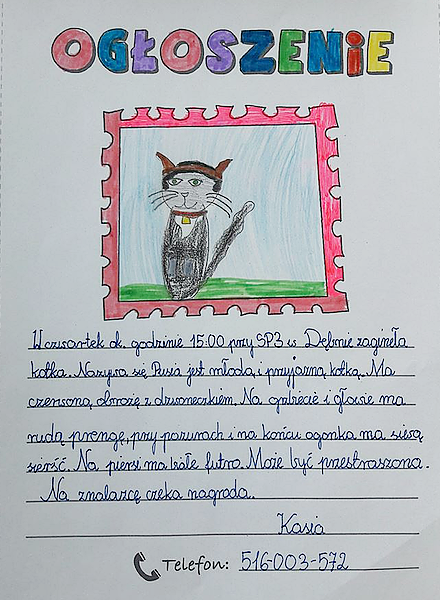 OGŁOSZENIE
W czwartek ok. godzinie 15:00 przy SP3 w Dębnie zaginęła
kotka. Nazywa się Rusia jest młodą i przyjazną kotką. Ma
czerwoną obrożę z dzwoneczkiem. Na grzbiecie i głowie ma
rudą pręgę, przy pazurach i na końcu ogonka ma siwą
sierść. Na piersi ma białe futro. Może być przestraszona.
Na znalazcę czeka nagroda.
Kasia
Telefon: 516-003-572